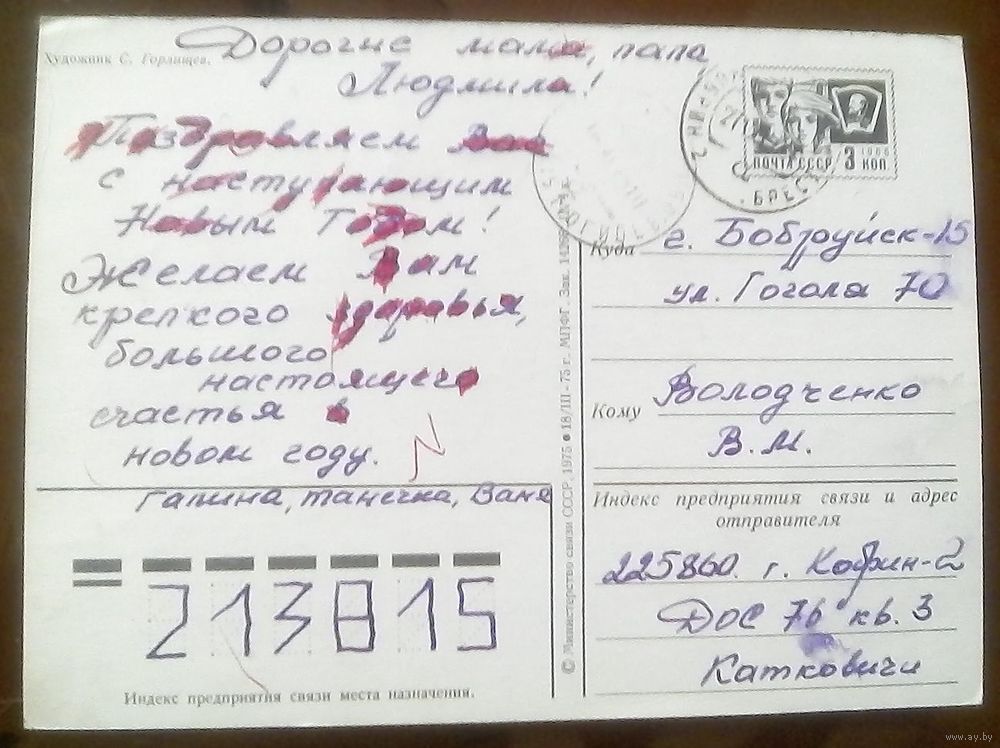 Художник С. Горлищев.
Дорогие мама, папа,
Людмила!
Поздравляем Вас
с наступающим
Новым Годом!
Желаем Вам
крепкого здоровья,
большого
настоящего
счастья в
новом году.
Галина, Танечка, Ваня
Индекс предприятия связи места назначения.
213815
© Министерство связи СССР, 1975 ● 18/III - 75 г. МПФГ. Зак.
ПОЧТА СССР 3 КОП.
1966
БРЕС
Куда г. Бобруйск-15
ул. Гоголя 70
Кому Володченко
В.М.
Индекс предприятия связи и адрес
отправителя
225860. г. Кобрин-2
ДОС 76 кв. 3
Катковичи
www.ay.by